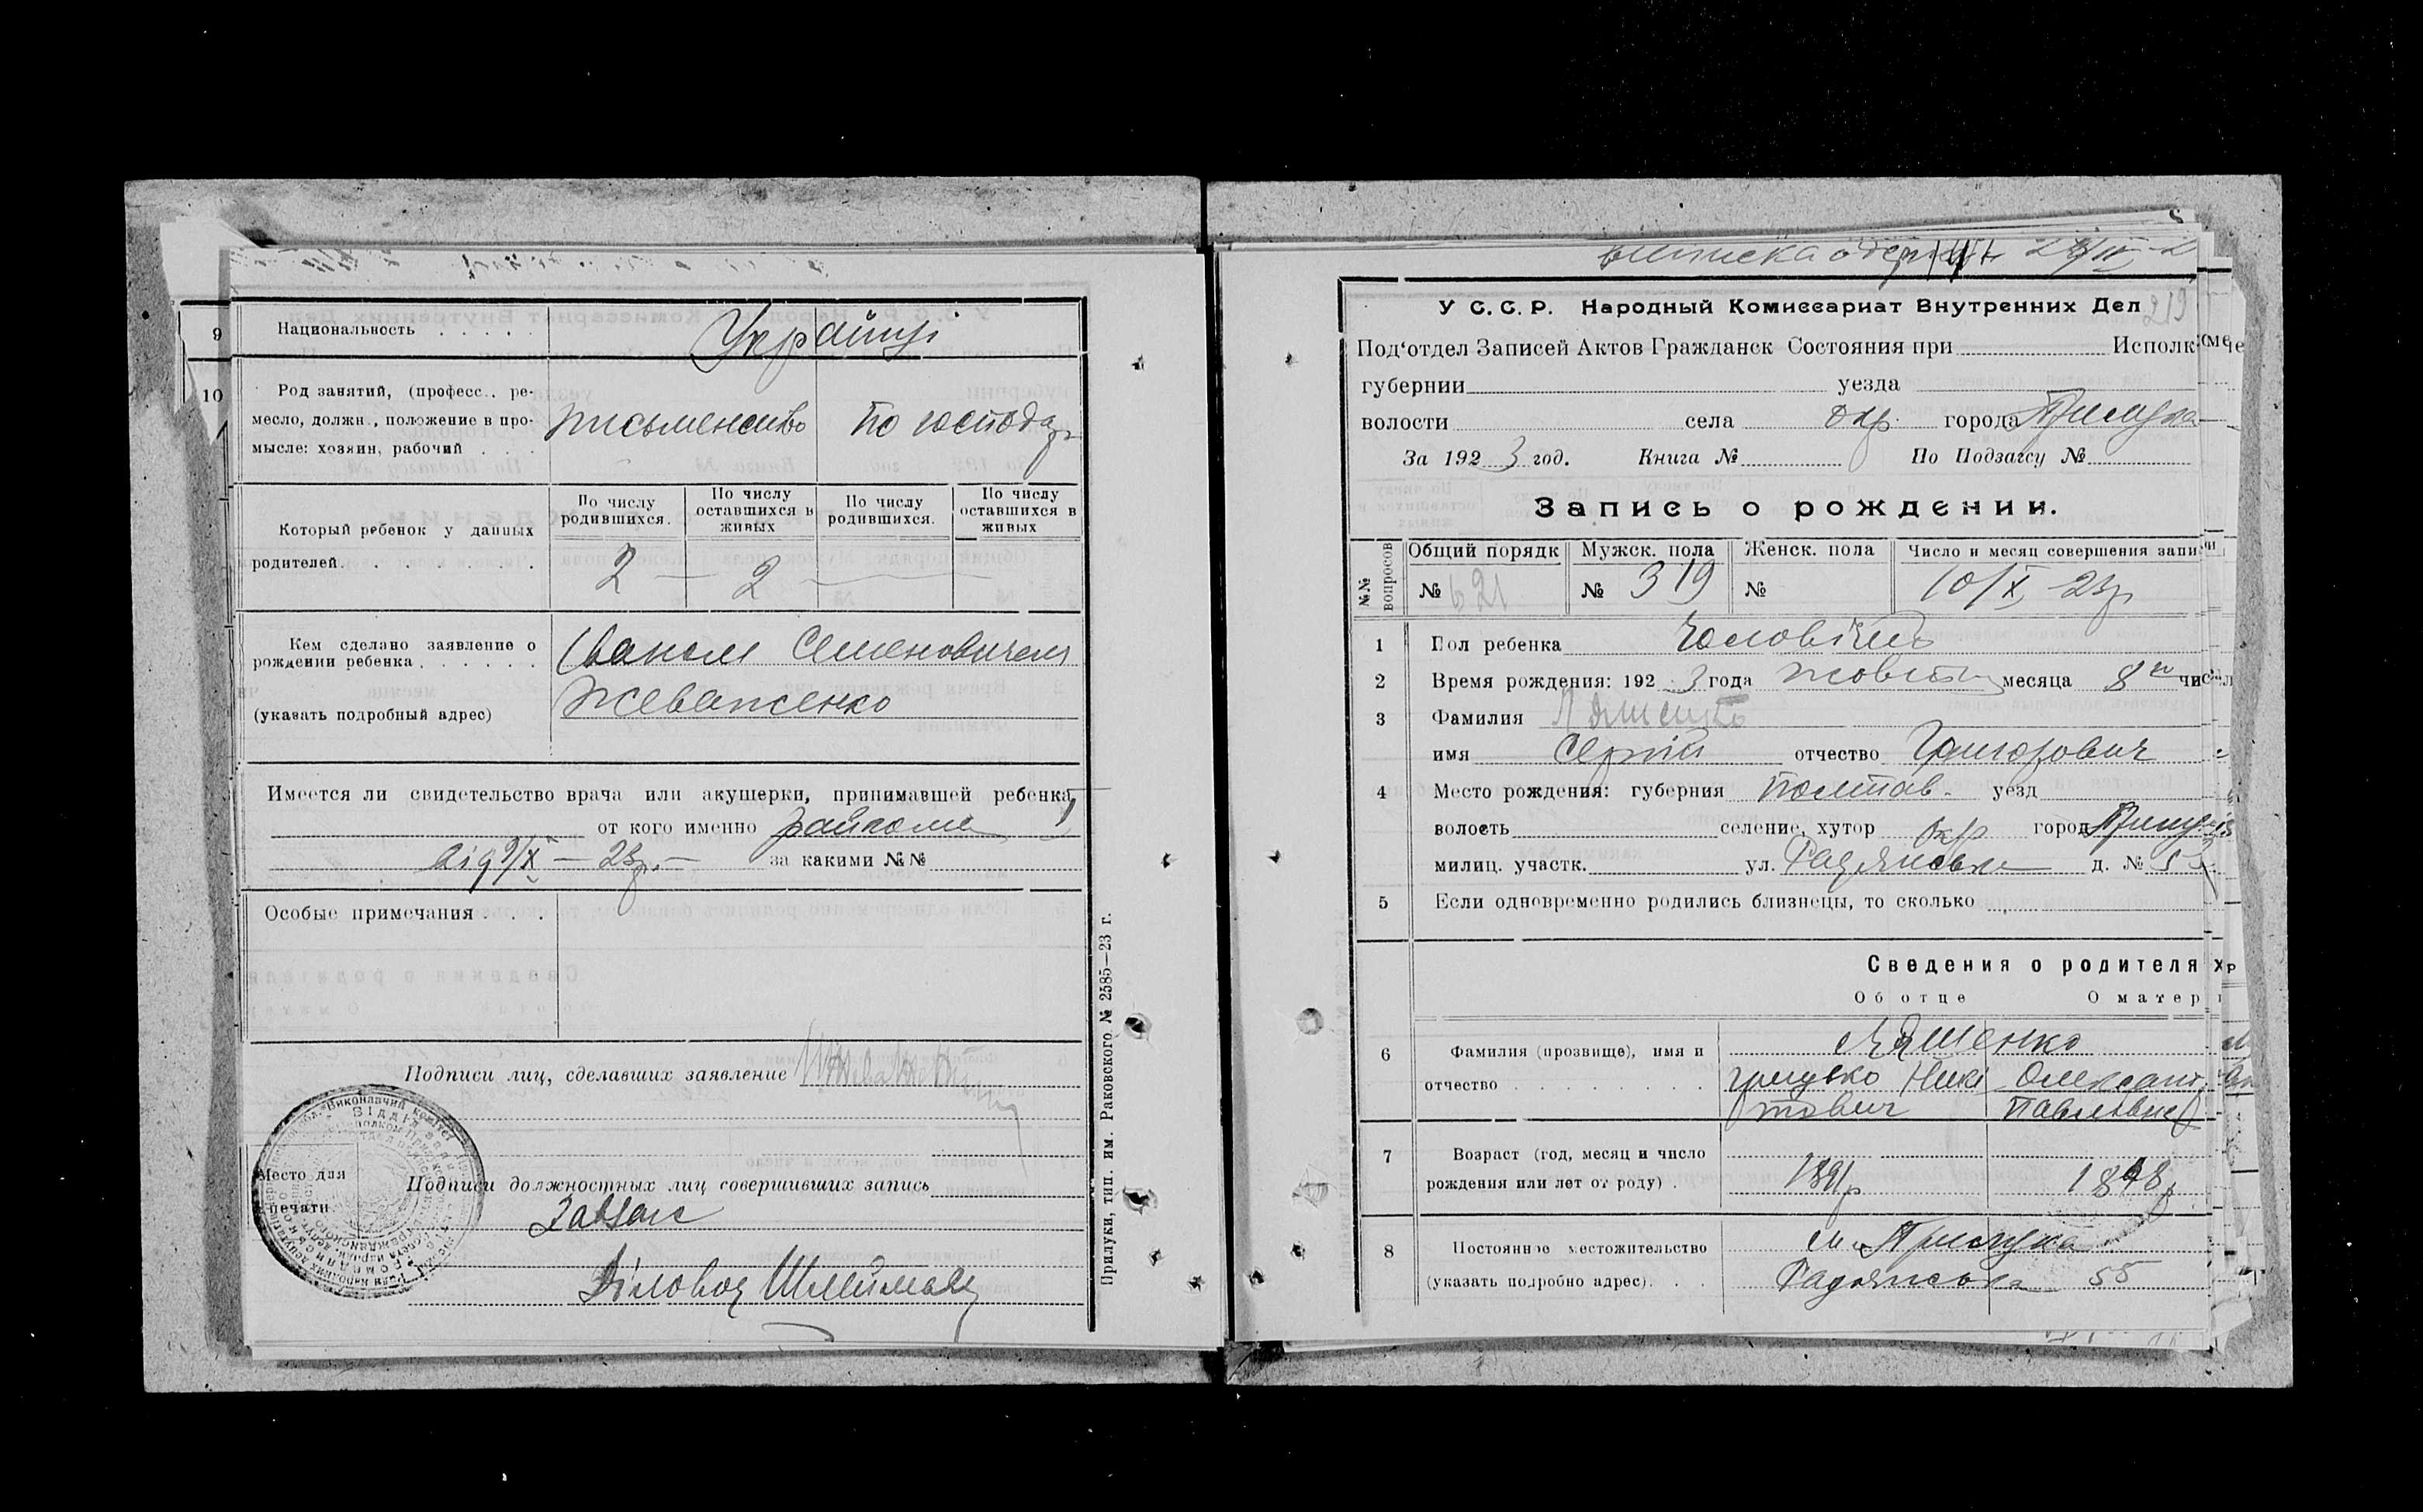 9 Национальность Українці
10 Род занятий, (професс., ре-
месло, должн., положение в про-
мысле: хозяин, рабочий
письменство По господар
Который ребенок у данных
родителей
По числу родившихся. По числу оставшихся в живых По числу родившихся. По числу оставшихся в живых
2 — 2
Кем сделано заявление о
рождении ребенка
(указать подробный адрес)
Іваном Семеновичем
Жеваженко
Имеется ли свидетельство врача или акушерки, принимавшей ребенка,
от кого именно райкома
від 9/X — 23р. — за какими №№
Особые примечания
Подписи лиц, сделавших заявление
Место для
печати
Подписи должностных лиц совершивших запись
Завзагс
Діловод
Прилуки, тип. им. Раковского № 2585—23 г.
виписка
У С. С. Р. Народный Комиссариат Внутренних Дел 219
Под‘отдел Записей Актов Гражданск Состояния при Исполк
губернии уезда
волости села окр. города Прилука
За 1923 год. Книга № По Подзагсу №
Запись о рождении.
№№ вопросов
Общий порядк Мужск. пола Женск. пола Число и месяц совершения запи
№ 621 № 319 № 10/X 23р
1 Пол ребенка Чоловічий
2 Время рождения: 1923 года жовтня месяца 8 числ
3 Фамилия Ляшенко
имя Сергій отчество Григорович
4 Место рождения: губерния Полтав. уезд
волость селение, хутор окр город Прилуки
милиц. участк. ул. Радянська д. № 55
5 Если одновременно родились близнецы, то сколько
Сведения о родителях
Об отце О матер
6 Фамилия (прозвище), имя и
отчество
Ляшенко
Грицько Микі Олександ
тович Павлівна
7 Возраст (год, месяц и число
рождения или лет от роду)
1891р 1898р
8 Постоянное местожительство
(указать подробно адрес)
м. Прилука
Радянська 55